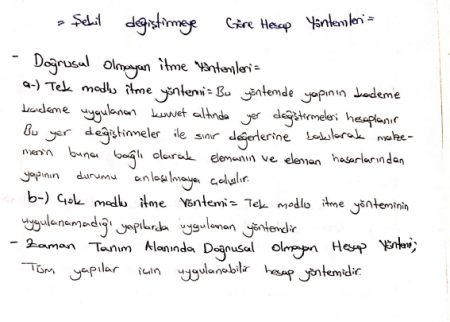 = Şekil değiştirmeye Göre Hesap Yöntemleri =
- Doğrusal Olmayan itme Yöntemleri =
a-) Tek modlu itme yöntemi = Bu yöntemde yapının kademe
kademe uygulanan kuvvet altında yer değiştirmeleri hesaplanır
Bu yer değiştirmeler ile sınır değerlerine bakılarak malze-
menin buna bağlı olarak elemanın ve eleman hasarlarından
yapının durumu anlaşılmaya çalışılır.
b-) Çok modlu itme Yöntemi = Tek modlu itme yönteminin
uygulanamadığı yapılarda uygulanan yöntemdir
- Zaman Tanım Alanında Doğrusal Olmayan Hesap Yöntemi;
Tüm yapılar için uygulanabilir hesap yöntemidir.